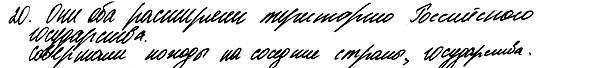 20. Они оба расширяли територию Российского
государства.
Совершали походы на соседние страны, государства.